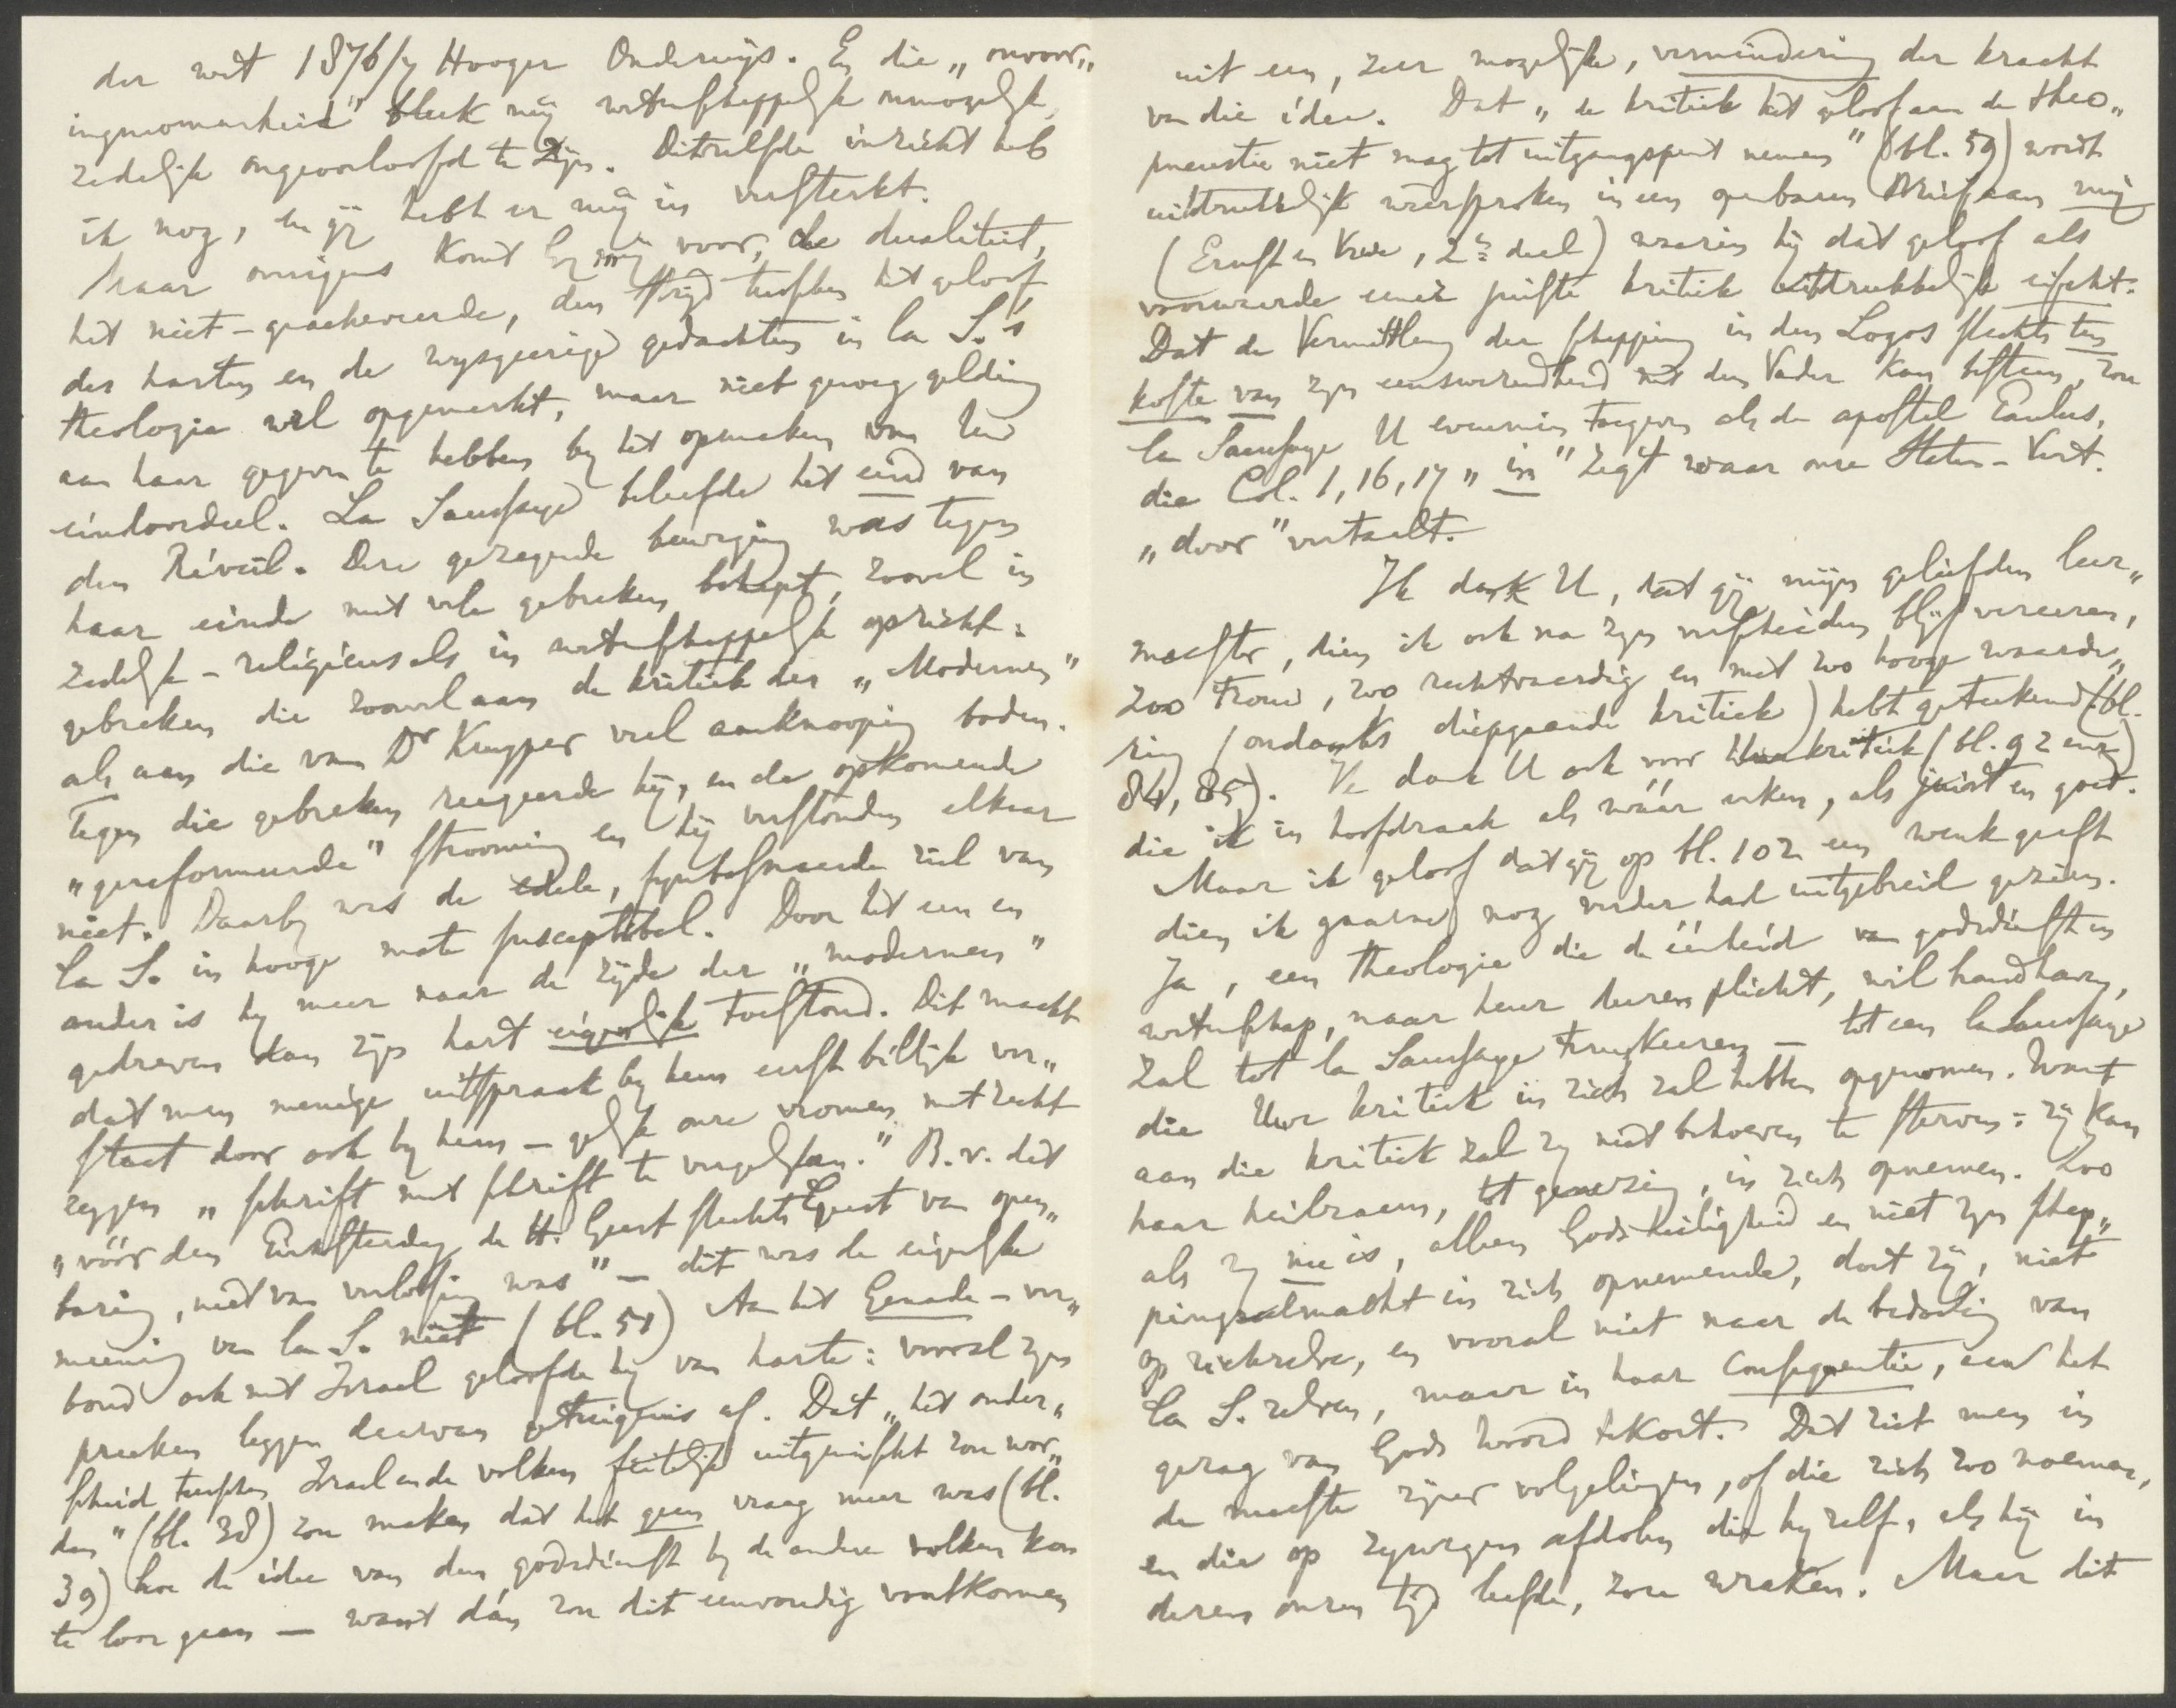 der wet 1876/7 Hooger Onderwijs. En die „onvoor„
ingenomenheid" bleek mij wetenschappelijk onmogelijk,
zedelijk ongeoorloofd te zijn. Ditzelfde inzicht heb
ik nog, en gij hebt er mij in versterkt.
Maar overigens komt Gij mij voor, de dualiteit,
het niet-geacheveerde, den strijd tusschen het geloof
des harten en de wijsgeerige gedachten in la S.'s
theologie wel opgemerkt, maar niet genoeg gelding
aan haar gegeven te hebben by het opmaken van Uw
eindoordeel. La Saussaye beleefde het eind van
den Réveil. Deze gezegende beweging was tegen
haar einde met vele gebreken behept, zoowel in
zedelijk-religieus als in wetenschappelijk opzicht:
gebreken die zoowel aan de kritiek der „Modernen"
als aan die van Dr Kuyper veel aanknooping boden.
Tegen die gebreken reageerde hij, en de opkomende
„gereformeerde" strooming en hij verstonden elkaar
niet. Daarby was de edele, ziel van
la S. in hooge mate susceptibel. Door het een en
ander is hy meer naar de zijde der „modernen"
gedreven dan zijn hart eigenlijk toestond. Dit maakt
dat men menige uitspraak by hem eerst billijk ver„
staat door ook by hem – gelijk onze vromen met recht
zeggen „schrift met schrift te vergelijken." B.v. dat
„vóór den Pinksterdag de H. Geest slechts Geest van open„
baring, niet van verlossing was" – dit was de eigenlijke
meening van la S. niet (bl. 51) Aan het Genade-ver„
bond ook met Israel geloofde hij van harte: vooral zijn
preeken leggen daarvan getuigenis af. Dat „het onder„
scheid tusschen Israel en de volken feitelijk uitgewischt zou wor„
den" (bl. 38) zou maken dat het geen vraag meer was (bl.
39) hoe de idee van den godsdienst by de andere volken kon
te loor gaan – want dán zou dit eenvoudig voortkomen
uit een, zeer mogelijke, vermindering der kracht
van die idee. Dat „de kritiek het geloof aan de theo„
pneustie niet mag tot uitgangspunt nemen" (bl. 59) wordt
uitdrukkelijk weersproken in een openbaren Brief aan mij
(Ernst en Vrede, 2e deel) waarin hij dàt geloof als
voorwaarde eener juiste kritiek uitdrukkelijk eischt.
Dat de Vermittleng der schepping in den Logos slechts ten
koste van zijn eenswezendheid met den Vader kan bestaan, zou
la Saussaye U evenmin toegeven als de apostel Paulus,
die Col. 1, 16, 17 „in" zegt waar onze Staten-Vert.
„door" vertaalt.
Ik dank U, dat gij mijn geliefden leer„
meester, dien ik ook na zijn verscheiden blijf vereeren,
zoo trouw, zoo rechtvaardig en met zoo hooge waarde„
ring (ondanks diepgaande kritiek) hebt geteekend (bl.
84, 85). Ik dank U ook voor Uwe kritiek (bl. 92 env)
die ik in hoofdzaak als wáár erken, als juist en goed.
Maar ik geloof dat gij op bl. 102 een wenk geeft
dien ik gaarne nog verder had uitgebreid gezien.
Ja, een theologie die de éénheid van godsdienst en
wetenschap, naar heur duren plicht, wil handhaven,
zal tot la Saussaye terugkeeren – tot een la Saussaye
die Uwe kritiek in zich zal hebben opgenomen. Want
aan die kritiek zal zij niet behoeven te sterven: zij kan
haar heilzaam, tot genezing, in zich opnemen. Zoo
als zij nu is, alleen Gods heiligheid en niet zijn schep„
pingsalmacht in zich opnemende, doet zij, niet
op zichzelve, en vooral niet naar de bedoeling van
la S. zelven, maar in haar Consequentie, aan het
gezag van Gods woord tekort. Dat ziet men in
de meeste zijner volgelingen, of die zich zoo noemen,
en die op zijwegen afdolen die hy zelf, als hij in
dezen onzen tijd leefde, zou wraken. Maar dit